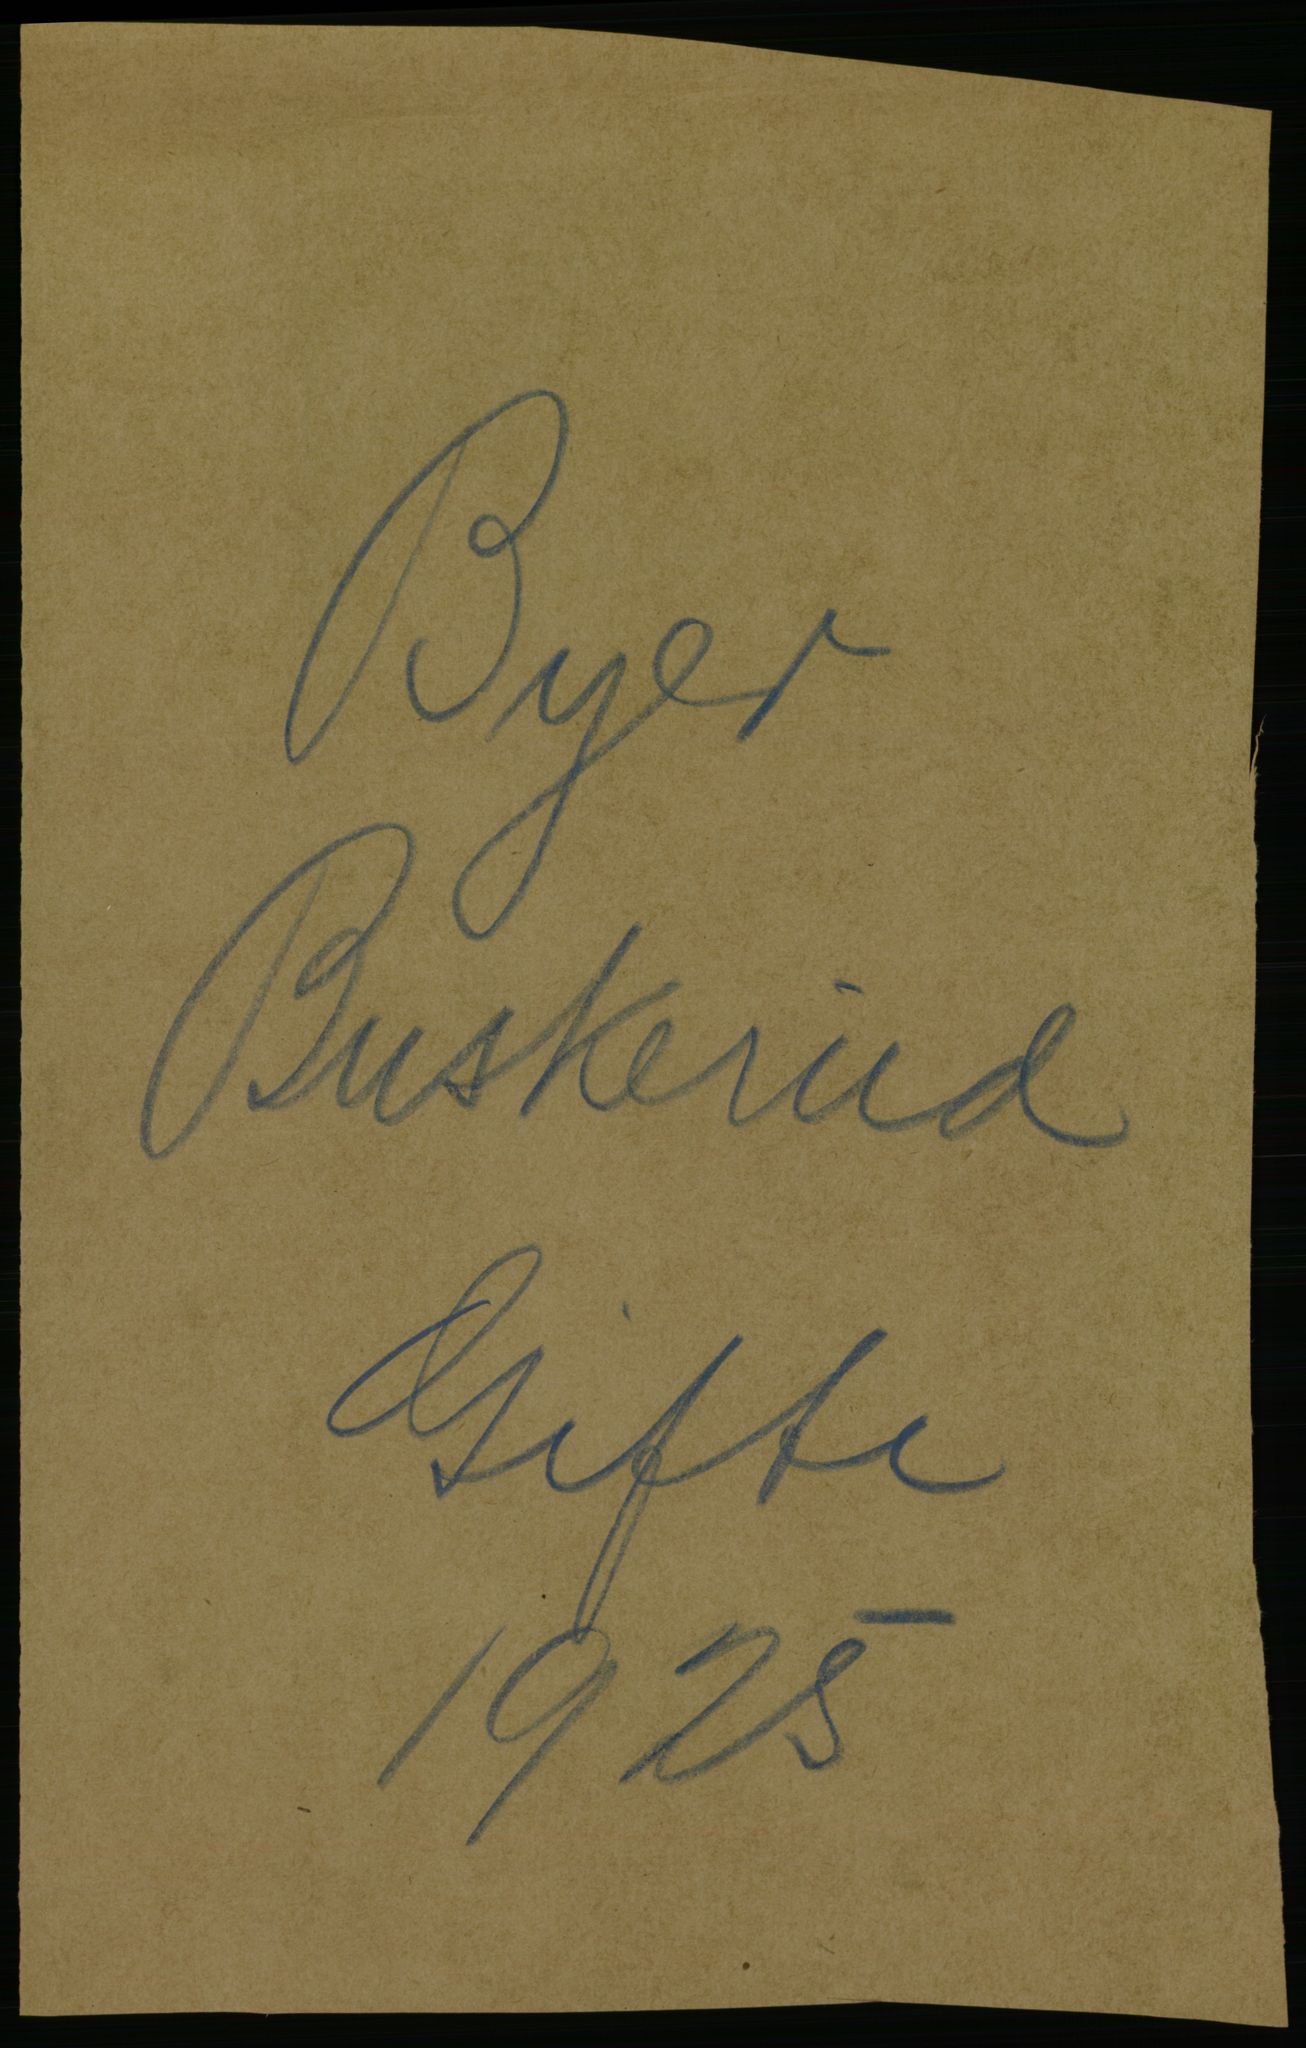 Byer
Buskerud
Gifte
1925